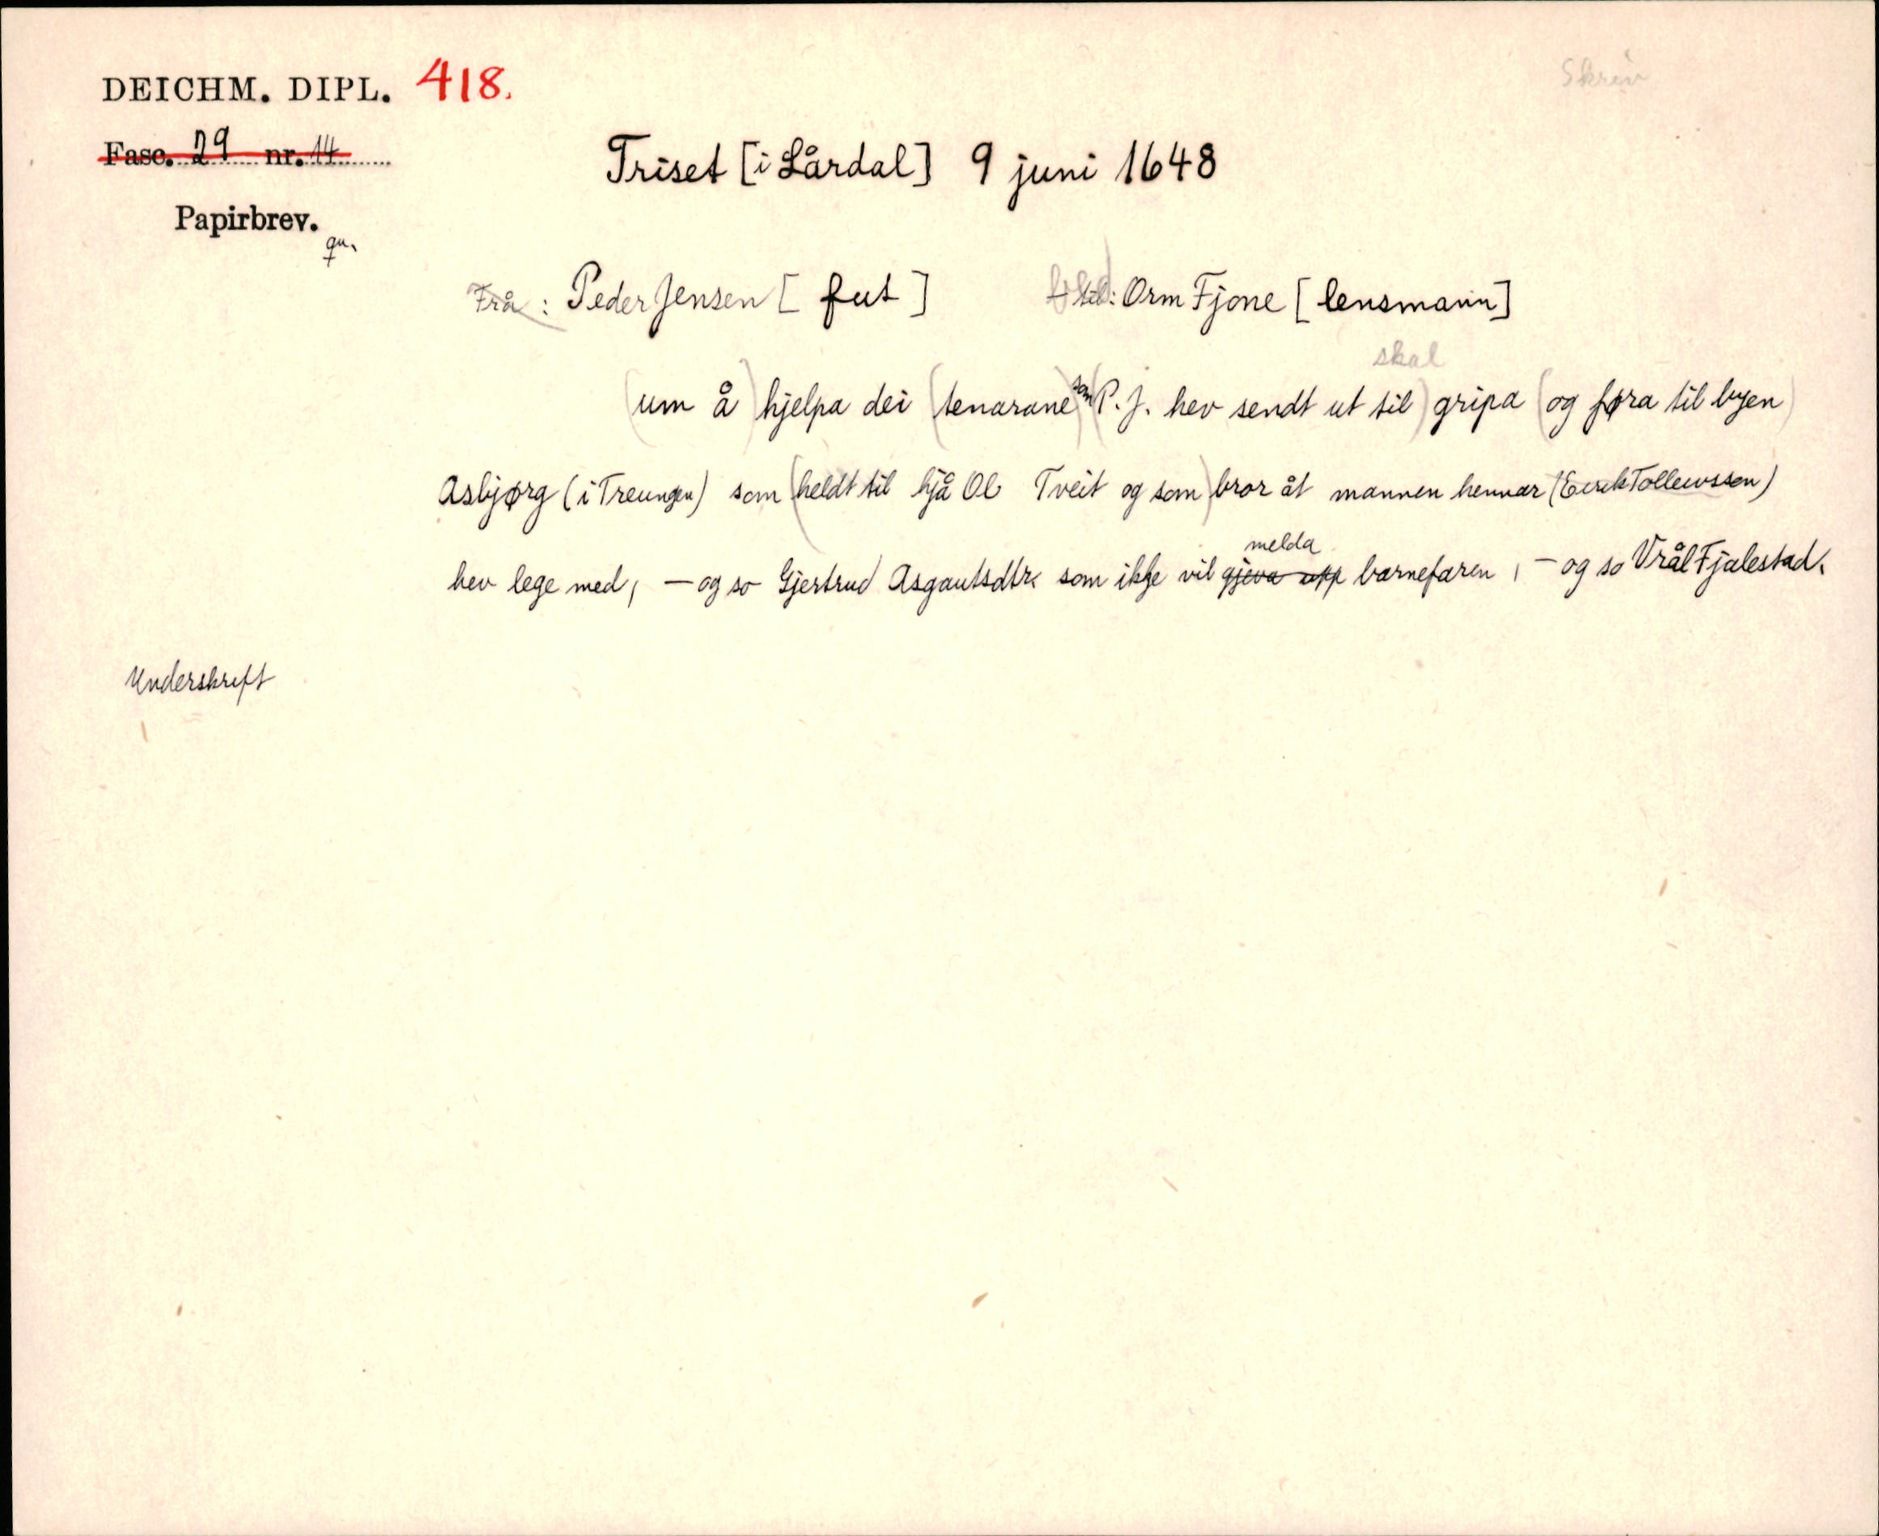 DEICHM. DIPL. 418.
Skriv
Fasc. 29 nr. 14
Triset [i Lårdal] 9 juni 1648
Papirbrev.
qu.
Frå: Peder Jensen [fut] til: Orm Fjone [lensmann]
skal
(um å) hjelpa dei (tenarane) som (P. J. hev sendt ut til) gripa (og føra til byen)
Asbjørg (i Treungen) som (heldt til hjå Ol Tveit og som) bror åt mannen hennar (Eirik Tollevssen)
melda
hev lege med, — og so Gjertrud Asgautsdtr. som ikkje vil gjeva upp barnefaren, — og so Vrål Fjalestad.
Underskrift